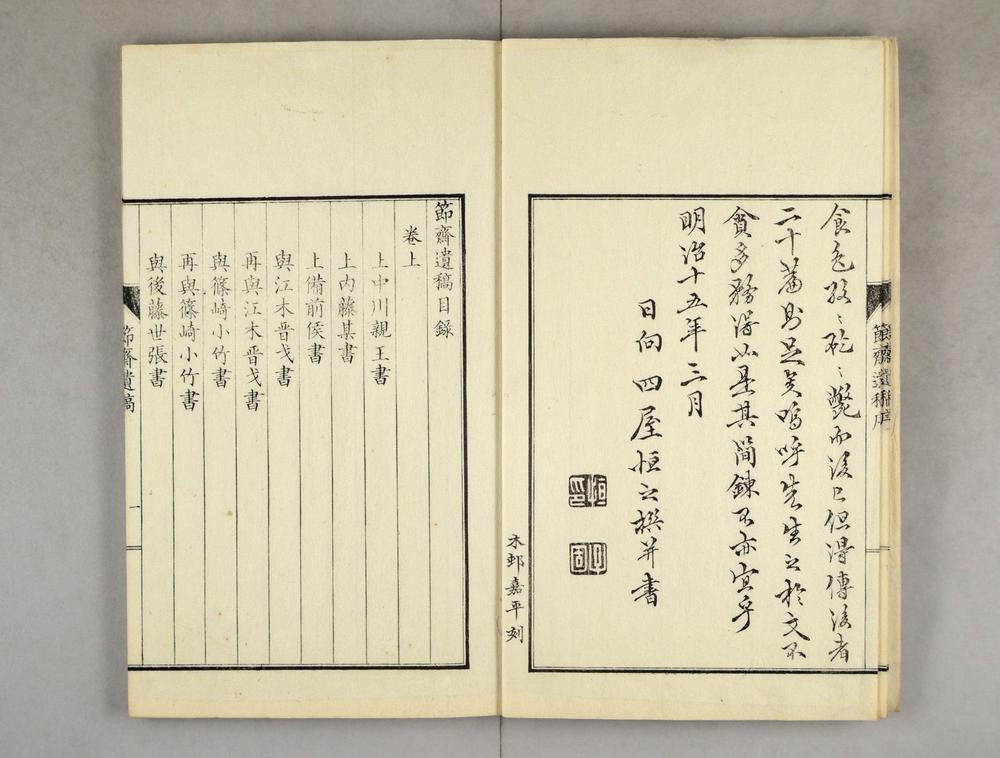 食色孜〻矻〻斃而後已但得傳後者
二十篇則足矣嗚呼先生之於文不
貪多務得如是其簡錬不亦宜乎
明治十五年三月
日向 四屋恒之撰并書
木邨嘉平刻
節齋遺稿序
節齋遺稿目録
卷上
上中川親王書
上内藤某書
上備前侯書
與江木晋戈書
再與江木晋戈書
與篠崎小竹書
再與篠崎小竹書
與後藤世張書
節齋遺稿
一